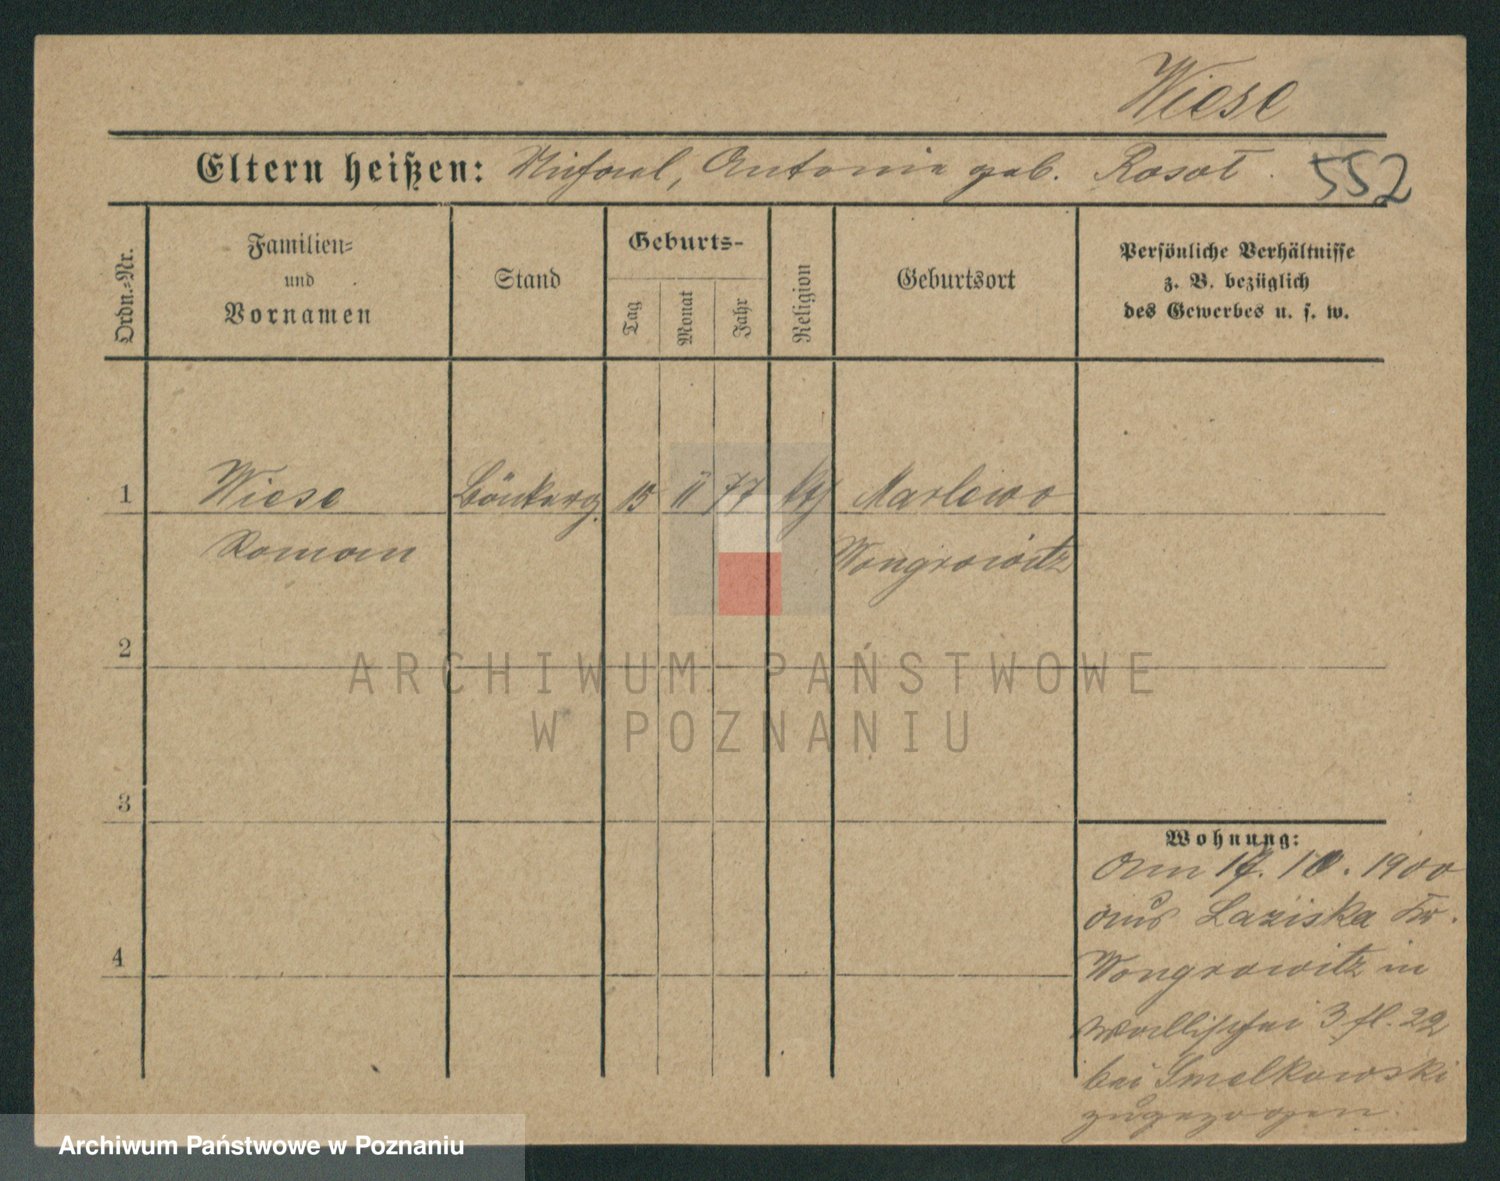 Wiese
Eltern heißen: Michael, Antonie geb. Rosot. 552
Ordn.-Nr.
Familien-
und
Vornamen
Stand
Geburts-
Tag
Monat
Jahr
Religion
Geburtsort
Persönliche Verhältnisse
z. B. bezüglich
des Gewerbes u. s. w.
1 Wiese 15 II 77 Marlewo
Roman Wongrowitz
2
ARCHIWUM PAŃSTWOWE
W POZNANIU
3
Wohnung:
Am 17. 10. 1900
aus Laziska Kr.
4
Wongrowitz in
Wallischei 3 fl. 22
bei Smelkowski
zugezogen.
Archiwum Państwowe w Poznaniu